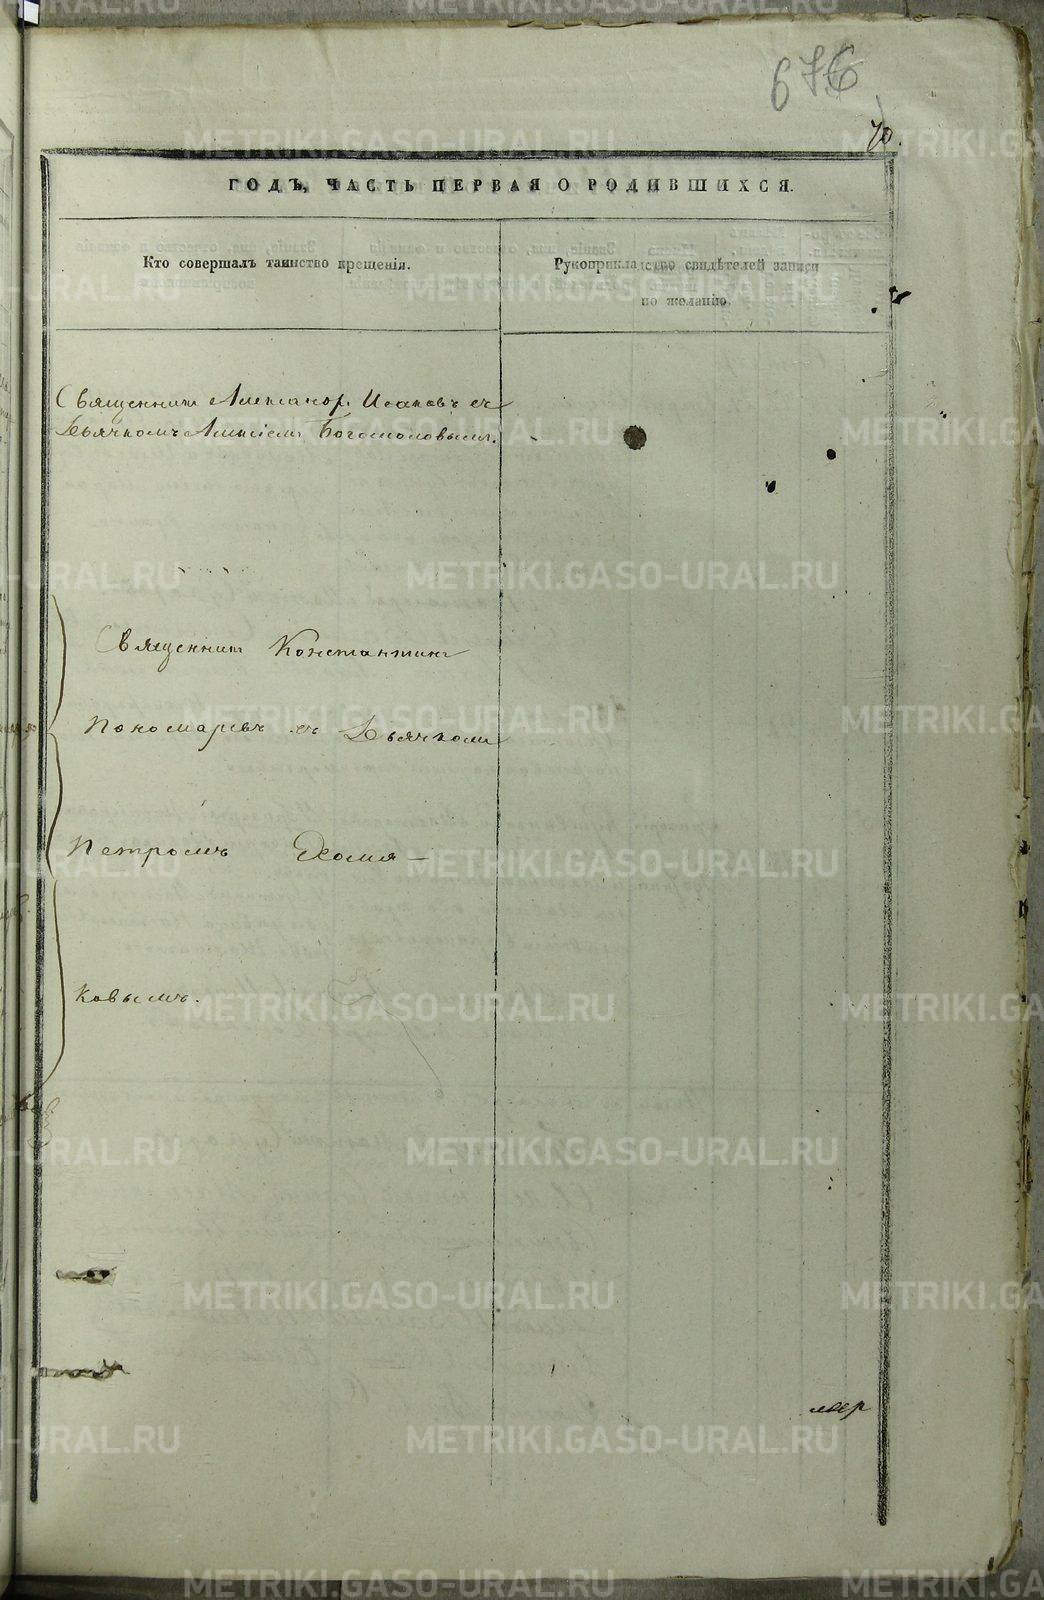 676
70.
ГОДЪ, ЧАСТЬ ПЕРВАЯ О РОДИВШИХСЯ.
Кто совершалъ таинство крещенія.
Рукоприкладство свидѣтелей записи
по желанію.
Священник Александр. Исаковъ съ
Дьячкомъ Алексіем Богомоловым.
Священник Константин
Пономаревъ съ Дьячком
Петромъ Хомя-
ковымъ.
METRIKI.GASO-URAL.RU